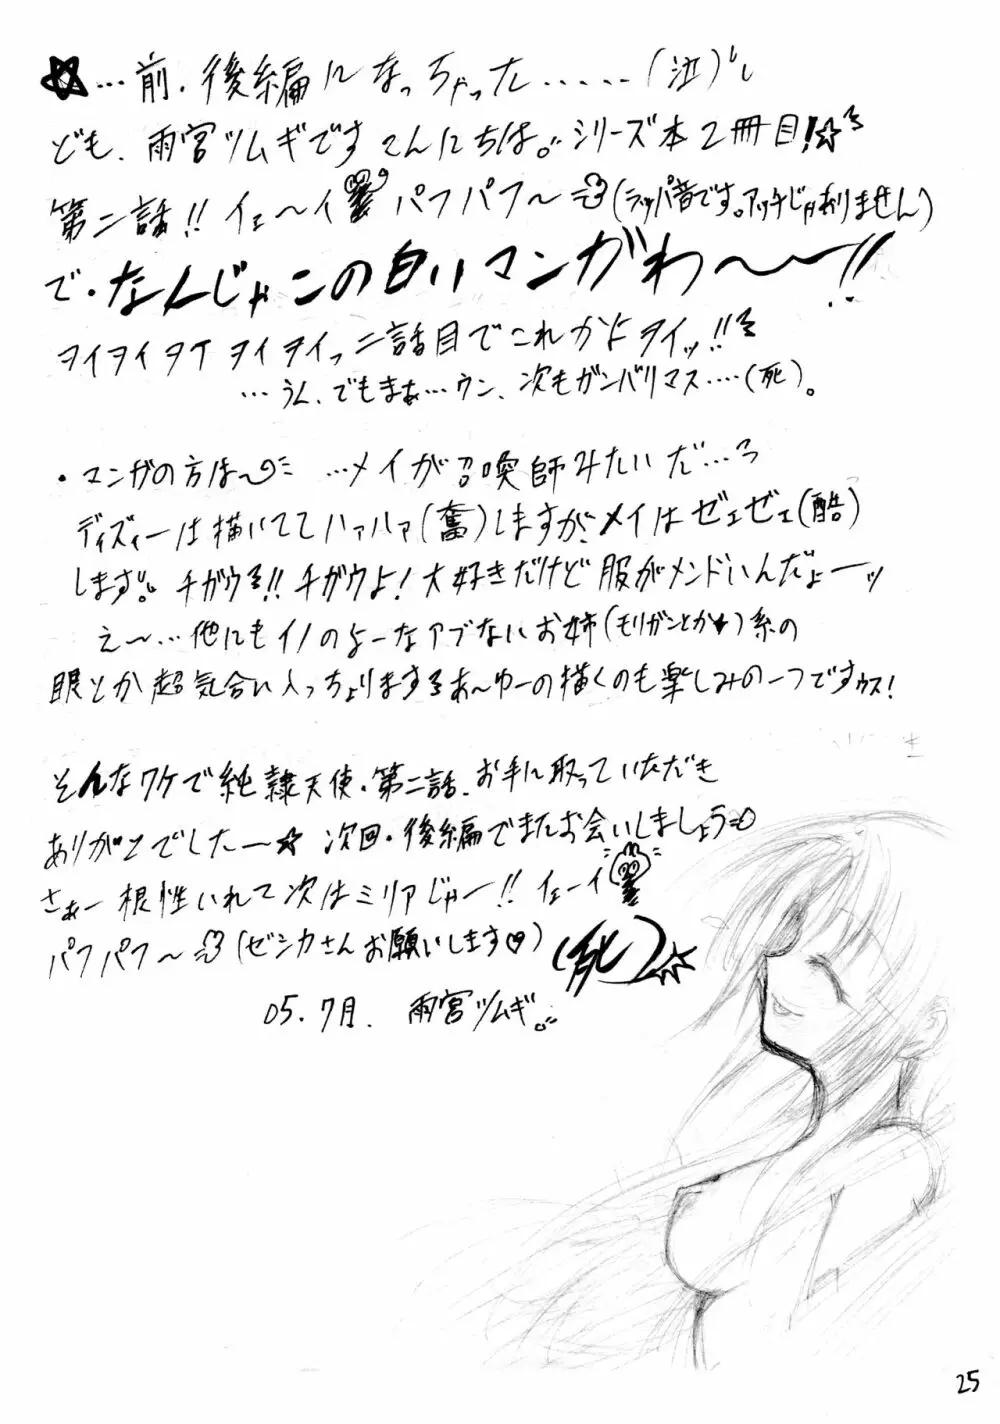 …前.後編になっちゃった……(泣)
ども、雨宮ツムギですこんにちは。シリーズ本2冊目!☆
第二話!!イェ〜イ パフパフ〜(ラッパ音です。アッチじゃありません)
で・なんじゃこの白いマンガわ〜〜ー!!
ヲイヲイヲイヲイヲイっ二話目でこれかよヲイッ!!
…うん、でもまぁ…ウン、次もガンバリマス‥‥(死)。
・マンガの方は〜 …メイが召喚師みたいだ…
ディズィーは描いててハァハァ(奮)しますが、メイはゼェゼェ(酷)
します。チガウ!!チガウよ!大好きだけど服がメンドいんだよーッ
え〜…他にもイノのよーなアブないお姉(モリガンとか)系の
眼とか超気合い入っちょりまするあ〜ゆーの描くのも楽しみの一つですゥス!
そんなワケで純隷天使・第二話、お手に取っていただき
ありがとでしたー☆ 次回・後編でまたお会いしましょう
さぁー根性いれて次はミリアじゃー!!イェーイ
パフパフ〜(ゼシカさんお願いします♡)(死)
05.7月. 雨宮ツムギ。
25